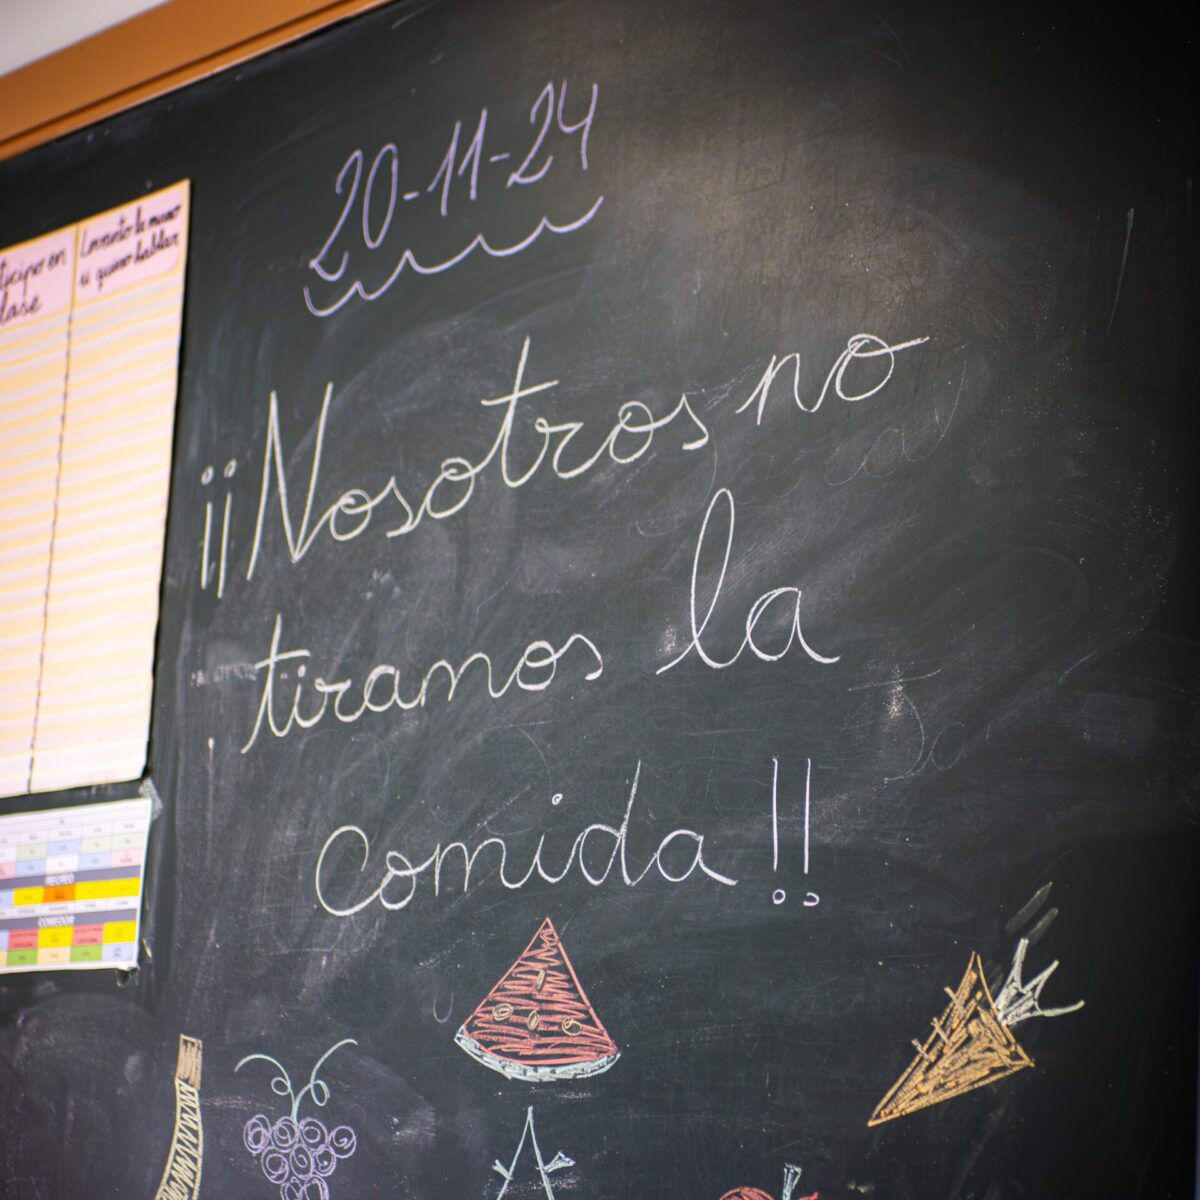 20-11-24
¡¡Nosotros no
tiramos la
comida!!
Levanto la mano
si quiero hablar
en
RECREO
COMEDOR